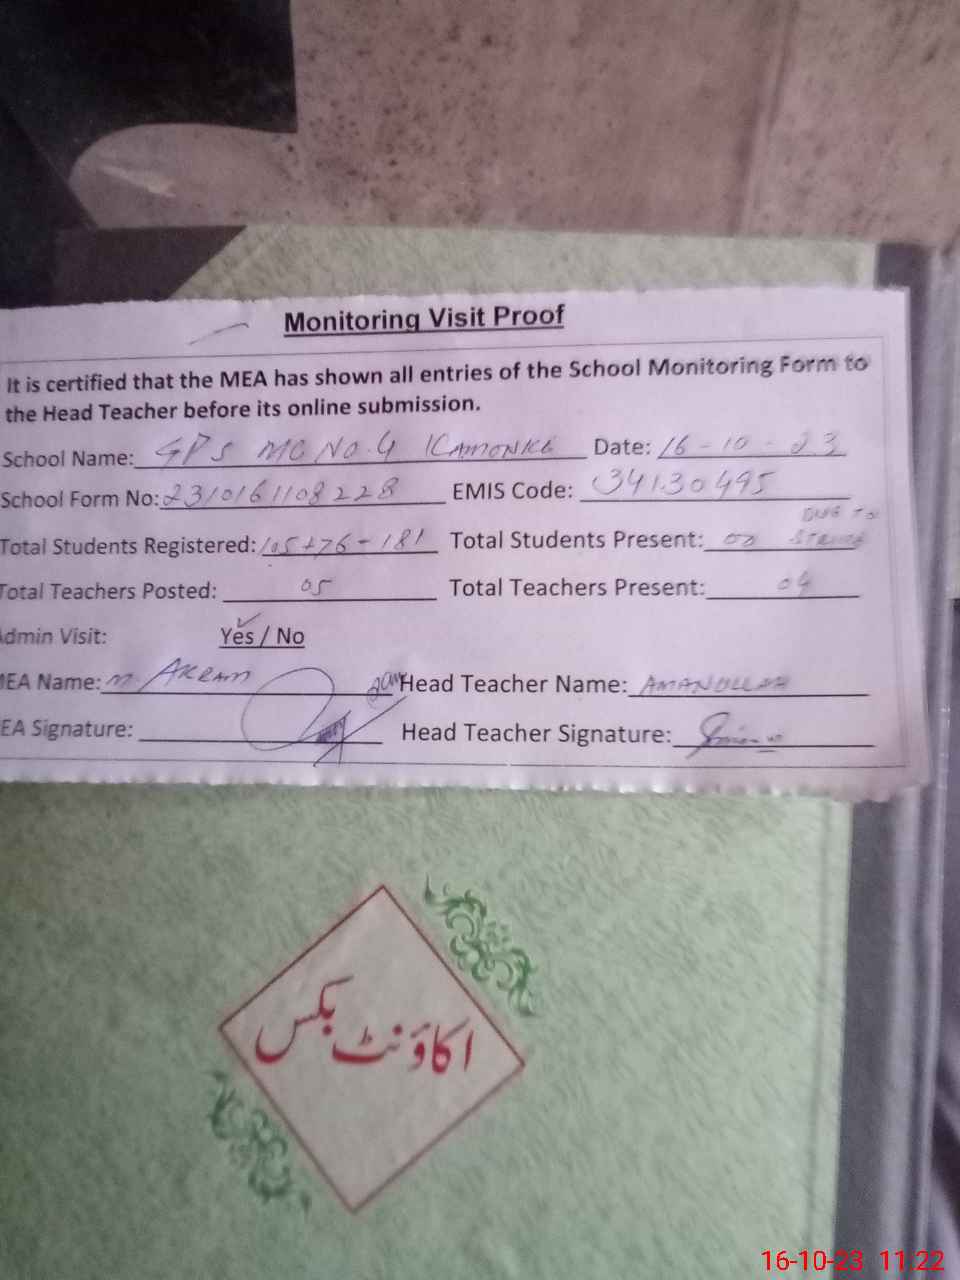 Monitoring Visit Proof
It is certified that the MEA has shown all entries of the School Monitoring Form to
the Head Teacher before its online submission.
School Name: GPS MC NO.4 KAMONKE Date: 16-10-23
School Form No: 2310161108228 EMIS Code: 34130495
DUE TO
Total Students Registered: 105+76=181 Total Students Present: 00
Total Teachers Posted: 05 Total Teachers Present: 04
Admin Visit: Yes / No
MEA Name: M. AKRAM Head Teacher Name: AMANULLAH
EA Signature: Head Teacher Signature:
اکاؤنٹ بکس
16-10-23 11:22